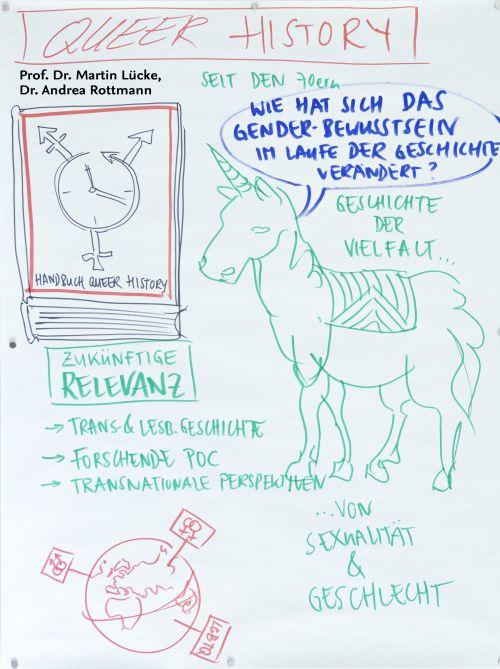 QUEER HISTORY
Prof. Dr. Martin Lücke,
Dr. Andrea Rottmann
SEIT DEN 70ern
WIE HAT SICH DAS
GENDER-BEWUSSTSEIN
IM LAUFE DER GESCHICHTE
VERÄNDERT?
GESCHICHTE
DER
VIELFALT...
HANDBUCH QUEER HISTORY
ZUKÜNFTIGE
RELEVANZ
→ TRANS- & LESB. GESCHICHTE
→ FORSCHENDE POC
→ TRANSNATIONALE PERSPEKTIVEN
...VON
SEXUALITÄT
&
GESCHLECHT
LGBTQ